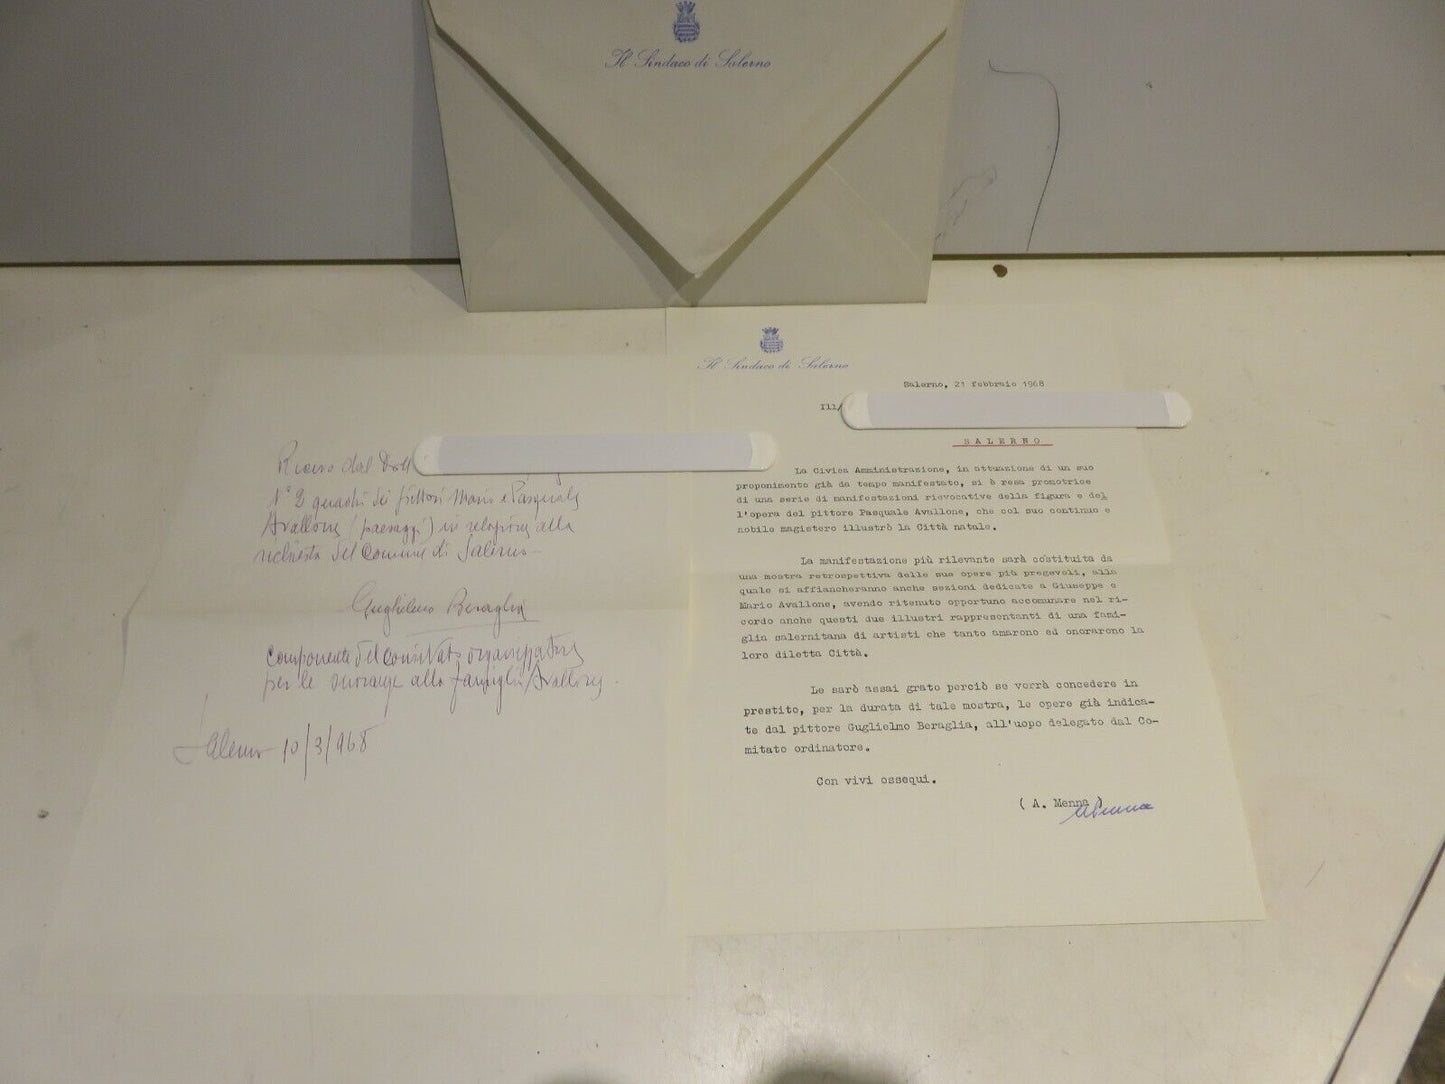 Il Sindaco di Salerno
Il Sindaco di Salerno
Salerno, 21 febbraio 1968
Ill/
SALERNO
La Civica Amministrazione, in attuazione di un suo
proponimento già da tempo manifestato, si è resa promotrice
di una serie di manifestazioni rievocative della figura e del
l'opera del pittore Pasquale Avallone, che col suo continuo e
nobile magistero illustrò la Città natale.
La manifestazione più rilevante sarà costituita da
una mostra retrospettiva delle sue opere più pregevoli, alla
quale si affiancheranno anche sezioni dedicate a Giuseppe e
Mario Avallone, avendo ritenuto opportuno accomunare nel ri-
cordo anche questi due illustri rappresentanti di una fami-
glia salernitana di artisti che tanto amarono ed onorarono la
loro diletta Città.
Le sarò assai grato perciò se vorrà concedere in
prestito, per la durata di tale mostra, le opere già indica-
te dal pittore Guglielmo Beraglia, all'uopo delegato dal Co-
mitato ordinatore.
Con vivi ossequi.
( A. Menna )
AMenna
Ricevo dal Dott
N° 2 quadri dei pittori Mario e Pasquale
Avallone (paesaggi) in relazione alla
richiesta del Comune di Salerno -
Guglielmo Beraglia
componente del comitato organizzatore
per le onoranze alla famiglia Avallone.
Salerno 10/3/968